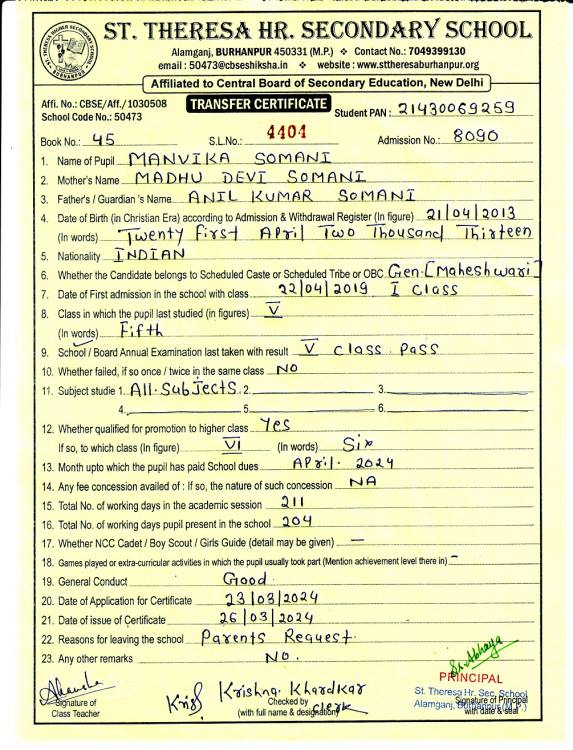 ST. THERESA HR. SECONDARY SCHOOL
Alamganj, BURHANPUR 450331 (M.P.) ❖ Contact No.: 7049399130
email : 50473@cbseshiksha.in ❖ website : www.sttheresaburhanpur.org
Affiliated to Central Board of Secondary Education, New Delhi
Affi. No.: CBSE/Aff./1030508 TRANSFER CERTIFICATE Student PAN : 21430069259
School Code No.: 50473
Book No.: 45 S.L.No.: 4404 Admission No.: 8090
1. Name of Pupil MANVIKA SOMANI
2. Mother's Name MADHU DEVI SOMANI
3. Father's / Guardian 's Name ANIL KUMAR SOMANI
4. Date of Birth (in Christian Era) according to Admission & Withdrawal Register (In figure) 21/04/2013
(In words) Twenty First April Two Thousand Thirteen
5. Nationality INDIAN
6. Whether the Candidate belongs to Scheduled Caste or Scheduled Tribe or OBC Gen-[Maheshwari]
7. Date of First admission in the school with class 22/04/2019 I class
8. Class in which the pupil last studied (in figures) V
(In words) Fifth
9. School / Board Annual Examination last taken with result V class Pass
10. Whether failed, if so once / twice in the same class NO
11. Subject studie 1. All. Subjects. 2. 3.
4. 5. 6.
12. Whether qualified for promotion to higher class Yes
If so, to which class (In figure) VI (In words) Six
13. Month upto which the pupil has paid School dues April. 2024
14. Any fee concession availed of : If so, the nature of such concession NA
15. Total No. of working days in the academic session 211
16. Total No. of working days pupil present in the school 204
17. Whether NCC Cadet / Boy Scout / Girls Guide (detail may be given) —
18. Games played or extra-curricular activities in which the pupil usually took part (Mention achievement level there in) –
19. General Conduct Good
20. Date of Application for Certificate 23/03/2024
21. Date of issue of Certificate 26/03/2024
22. Reasons for leaving the school Parents Request.
23. Any other remarks NO.
PRINCIPAL
St. Theresa Hr. Sec. School
Alamganj, Burhanpur (M.P.)
Signature of Principal
with date & seal
Krishna Khardkar
Signature of
Class Teacher
Checked by
(with full name & designation) Clerk